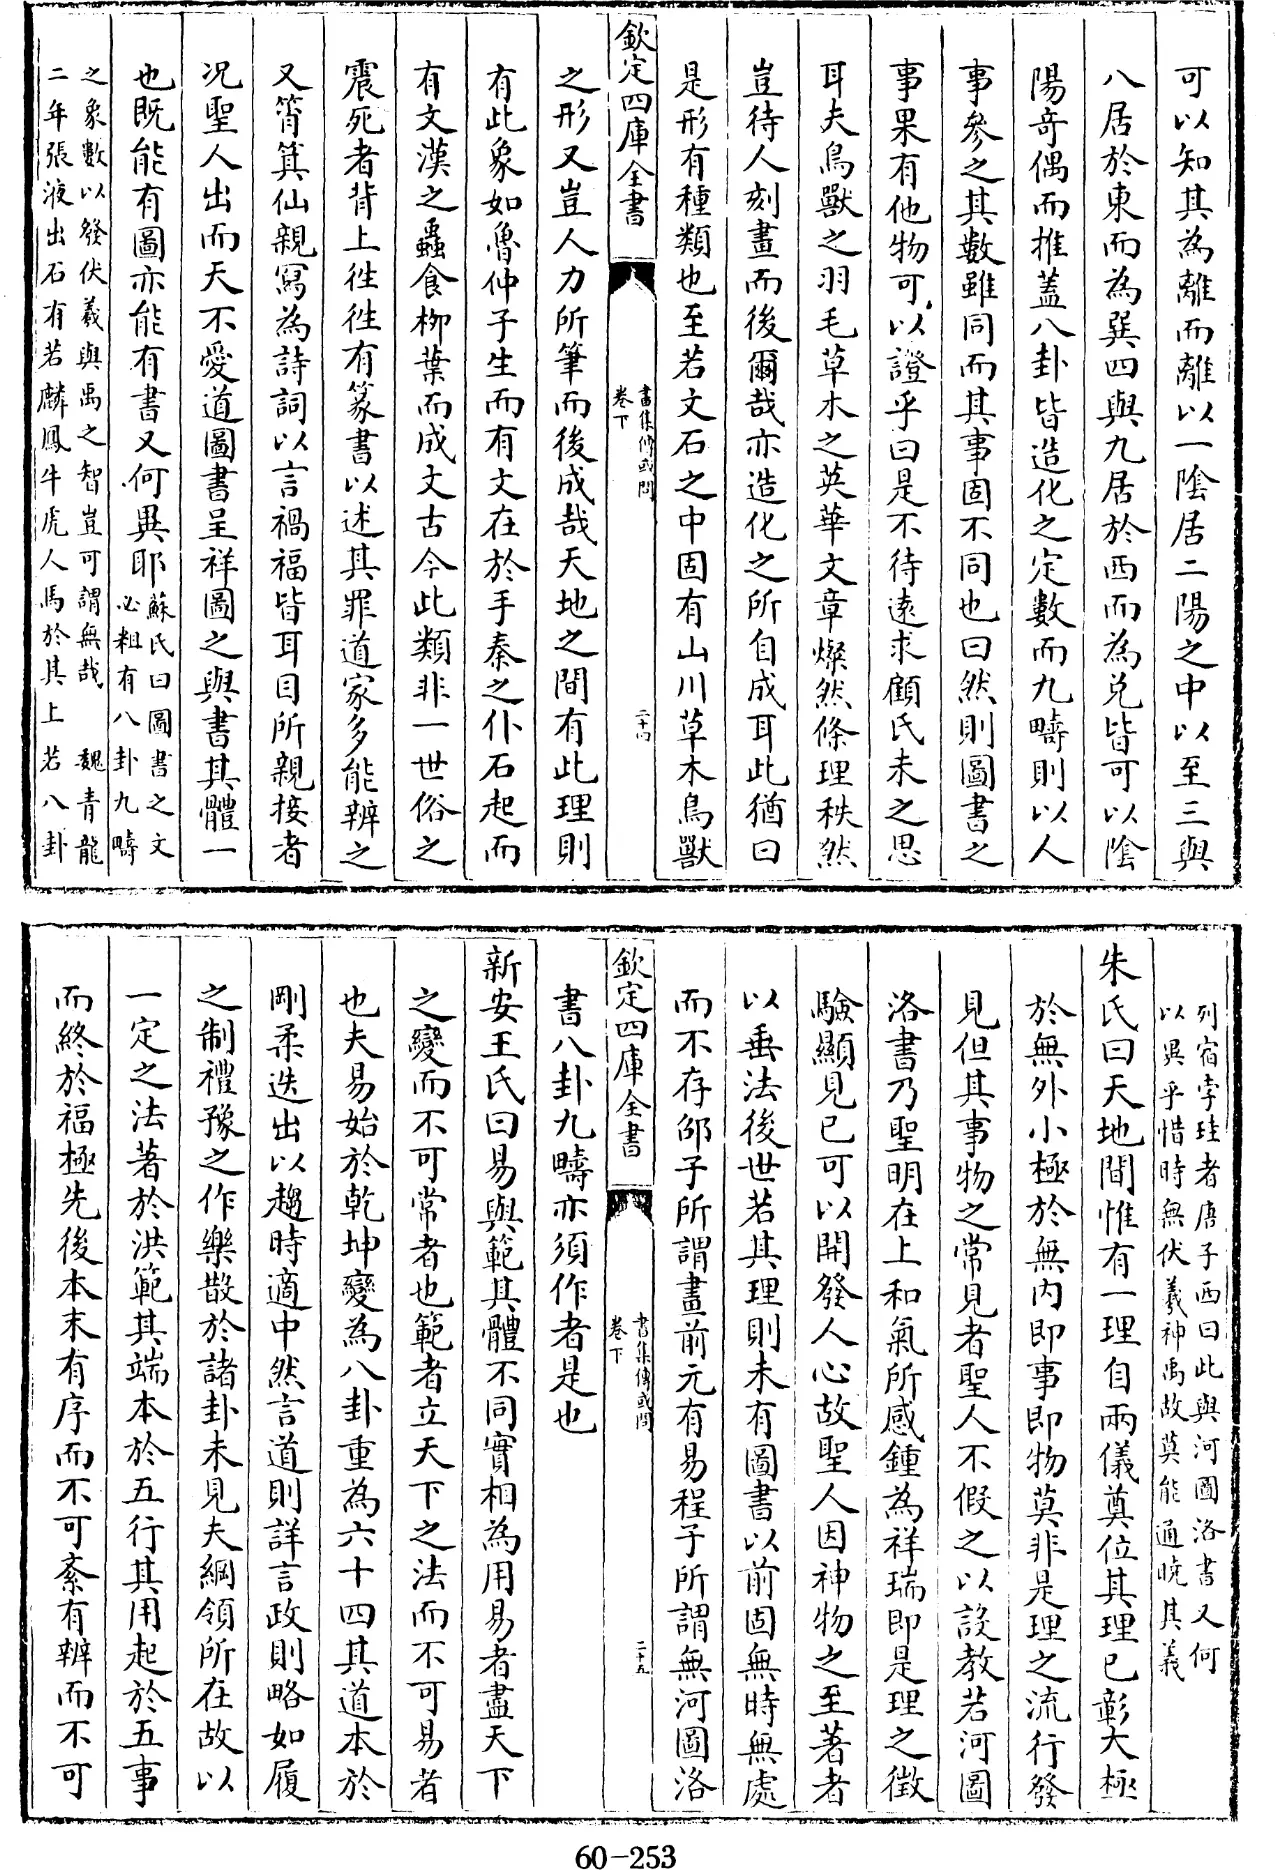 可以知其為離而離以一陰居二陽之中以至三與
八居於東而為巽四與九居於西而為兌皆可以陰
陽奇偶而推蓋八卦皆造化之定數而九疇則以人
事參之其數雖同而其事固不同也曰然則圖書之
事果有他物可以證乎曰是不待逺求顧氏未之思
耳夫鳥獸之羽毛草木之英華文章燦然條理秩然
豈待人刻畫而後爾哉亦造化之所自成耳此猶曰
是形有種類也至若文石之中固有山川草木鳥獸
欽定四庫全書
書集傳或問
卷下
二十四
之形又豈人力所筆而後成哉天地之間有此理則
有此象如魯仲子生而有文在於手秦之仆石起而
有文漢之蟲食栁葉而成文古今此類非一世俗之
震死者背上徃徃有篆書以述其罪道家多能辨之
又箕仙親寫為詩詞以言禍福皆耳目所親接者
况聖人出而天不愛道圖書呈祥圖之與書其體一
也既能有圖亦能有書又何異耶
蘇氏曰圖書之文
必粗有八卦九疇
之象數以發伏羲與禹之智豈可謂無哉 魏青龍
二年張液出石有若麟鳳牛虎人馬於其上若八卦
列宿孛珪者唐子西曰此與河圖洛書又何
以異乎惜時無伏羲神禹故莫能通曉其義
朱氏曰天地間惟有一理自兩儀奠位其理已彰大極
於無外小極於無内即事即物莫非是理之流行發
見但其事物之常見者聖人不假之以設教若河圖
洛書乃聖明在上和氣所感鍾為祥瑞即是理之徴
驗顯見已可以開發人心故聖人因神物之至著者
以垂法後世若其理則未有圖書以前固無時無處
而不存邵子所謂畫前元有易程子所謂無河圖洛
欽定四庫全書
書集傳或問
卷下
二十五
書八卦九疇亦須作者是也
新安王氏曰易與範其體不同實相為用易者盡天下
之變而不可常者也範者立天下之法而不可易者
也夫易始於乾坤變為八卦重為六十四其道本於
剛柔迭出以趨時適中然言道則詳言政則略如履
之制禮豫之作樂散於諸卦未見夫綱領所在故以
一定之法著於洪範其端本於五行其用起於五事
而終於福極先後本末有序而不可紊有辨而不可
60-253